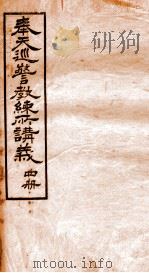 奉天巡警教練所講義 四冊
mtoou.info